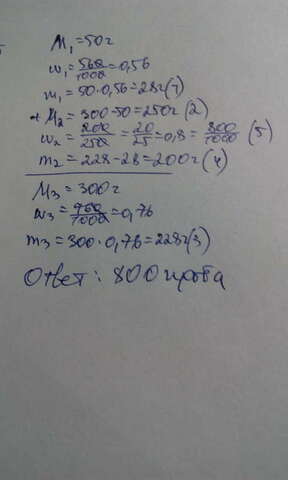 M₁=50г
ω₁=560/1000=0,56
m₁=50·0,56=28г(1)
+ M₂=300-50=250г(2)
ω₂=200/250=20/25=0,8=800/1000 (5)
m₂=228-28=200г(4)
M₃=300г
ω₃=760/1000=0,76
m₃=300·0,76=228г(3)
Ответ: 800 проба